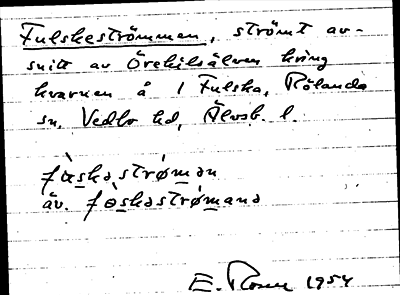 Fulskeströmmen, strömt av-
snitt av Örekilsälven kring
kvarnen å 1 Fulska, Rölanda
sn, Vedbo hd, Älvsb. l.
fu̇skastrǿmən
äv. føskəstrǿmana
E. Rosen 1954